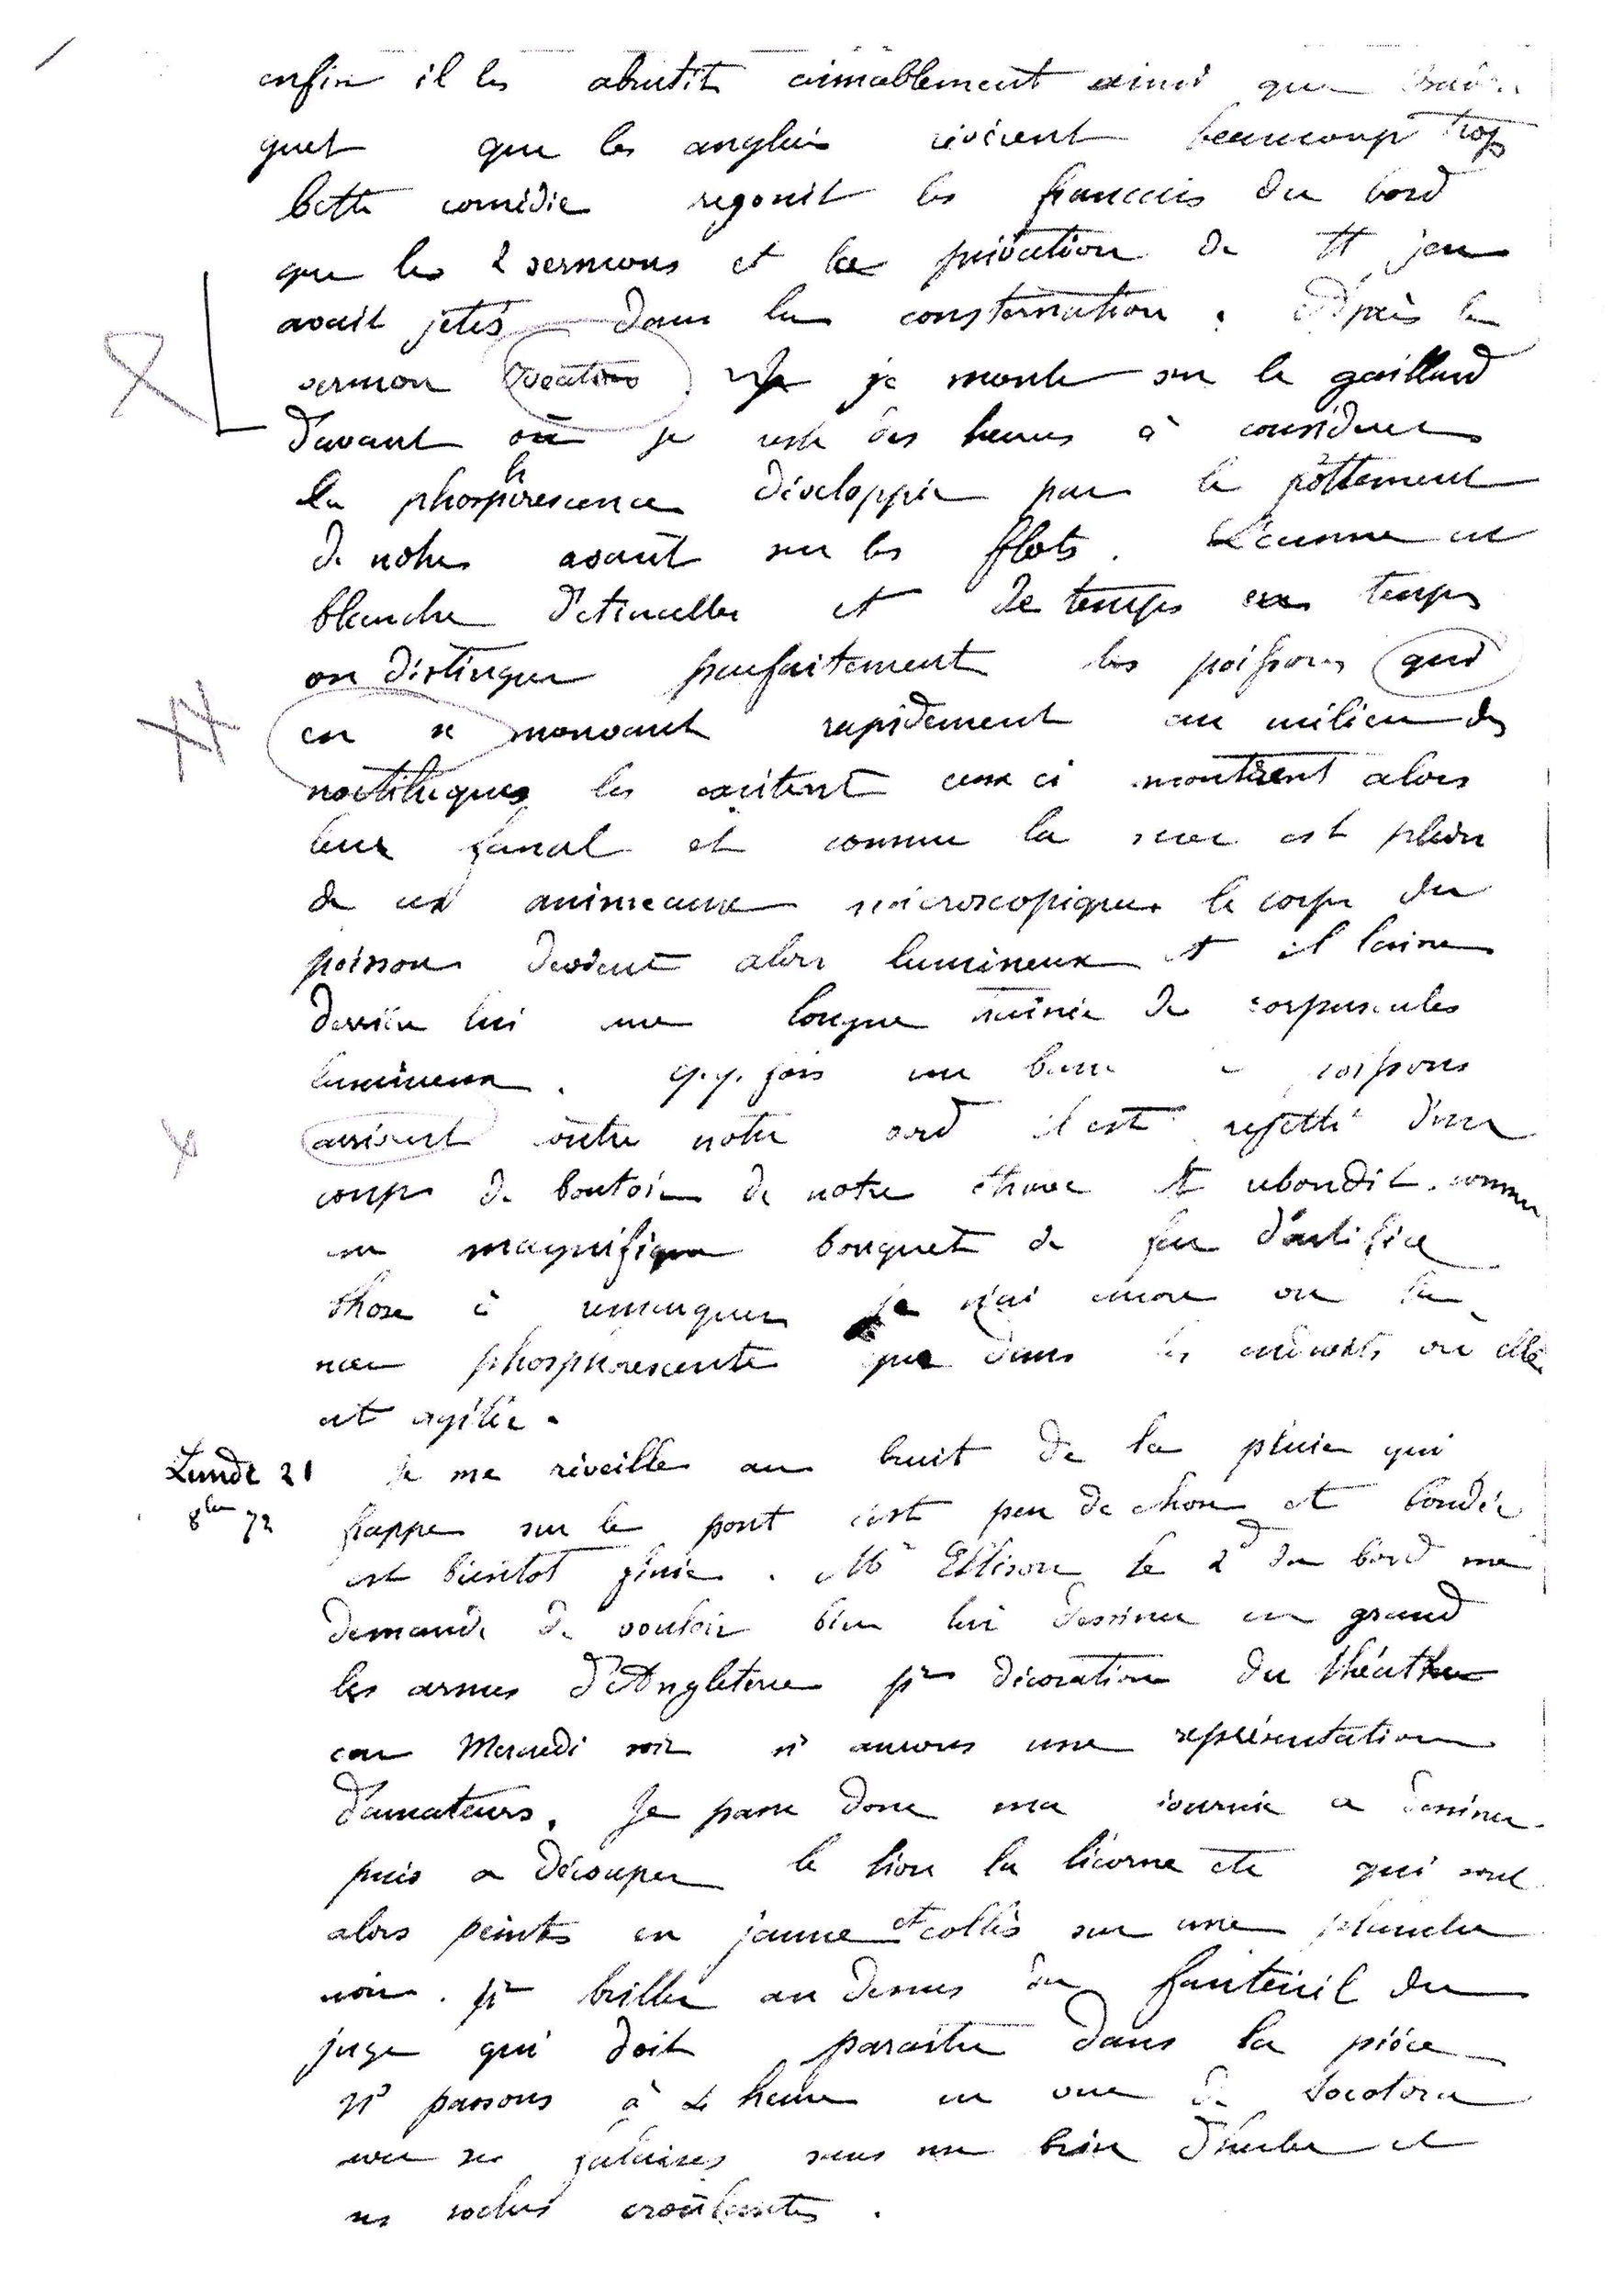 enfin il les abrutit aimablement ainsi que
guet que les anglais révèrent beaucoup trop
Cette comédie regonit les francais du bord
que les 2 sermons et la privation de tt jeu
avait jetés dans la consternation. Après le
sermon je monte sur le gaillard
d'avant où je reste des heures à considérer
la phosphorescence développée par le frottement
de notre avant sur les flots. L'écume est
blanche d'etincelles et de temps en temps
on distingue parfaitement les poissons qui
en se mouvant rapidement au milieu des
noctiluques les excitent ceux ci montrent alors
leur fanal et comme la mer est pleine
de ces animeaux microscopiques le corps du
poisson devient alors lumineux et il laisse
derrière lui une longue trainée de corpuscules
lumineux. q.q. fois un banc de poissons
arrivent contre notre bord il est rejetté d'un
coup de boutoir de notre étrave et rebondit comme
un magnifique bouquet de feu d'artifice
Chose à remarquer je n'ai encore vu la
mer phosphorescente que dans les endroits où elle
est agitée.
Lundi 21 Je me réveille au bruit de la pluie qui
8bre 72 frappe sur le pont c'est peu de chose et l'ondée
est bientot finie. Mr Ellison le 2d du bord me
demande de vouloir bien lui dessiner en grand
les armes d'Angleterre pr décoration du théatre
car Mercredi soir ns aurons une représentation
d'amateurs. Je passe donc ma journée a dessiner
puis a découper le lion la licorne etc qui sont
alors peints en jaune et collés sur une planche
noire. pr briller au dessus du fauteuil du
juge qui doit paraitre dans la pièce
ns passons à 4 heure en vue de Socotora
avec ses falaises sans un brin d'herbe et
ses roches croûlantes.